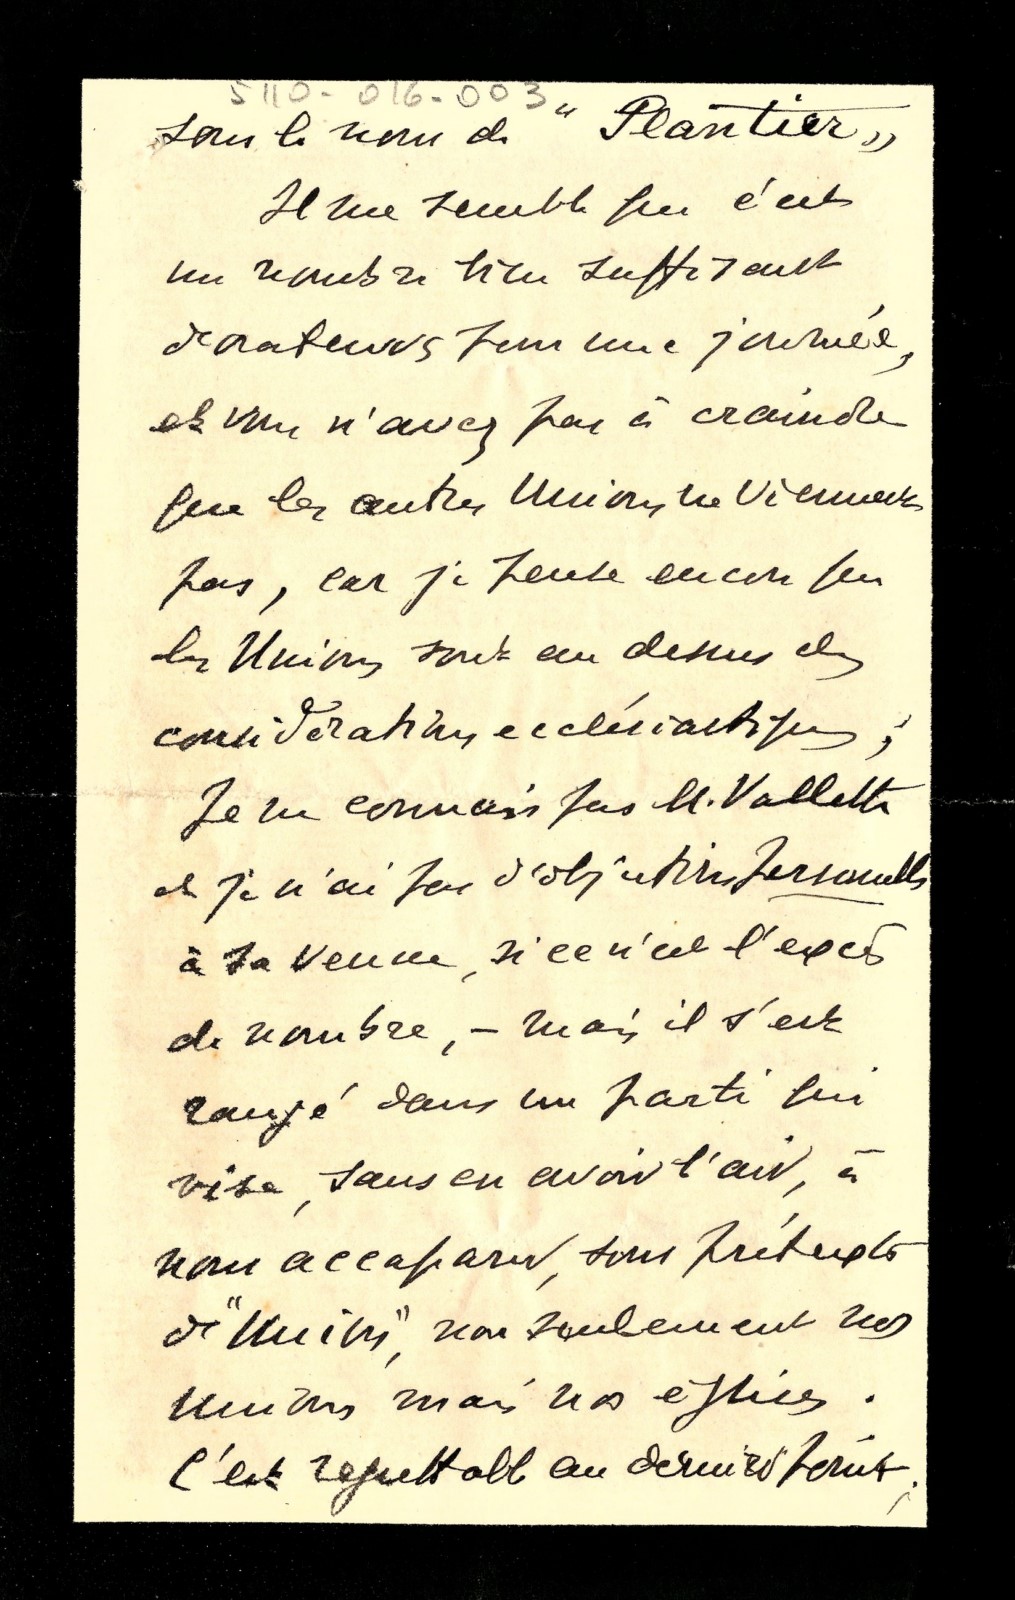 5110-016-003
sous le nom de " Plantier „
Il me semble que c'est
un nombre bien suffisant
d'orateurs pour une journée,
et vous n'avez pas à craindre
que les autres Unions ne viennent
pas, car je pense encore que
les Unions sont au dessus des
considérations ecclésiastiques ;
Je ne connais pas M. Vallette
et je n'ai pas d'objections personnelles
à sa venue, si ce n'est l'excès
de nombre, – mais il s'est
rangé dans un parti qui
vise, sans en avoir l'air, à
nous accaparer, sous prétexte
d'"Union", non seulement nos
Unions mais nos églises.
C'est regrettable au dernier point,